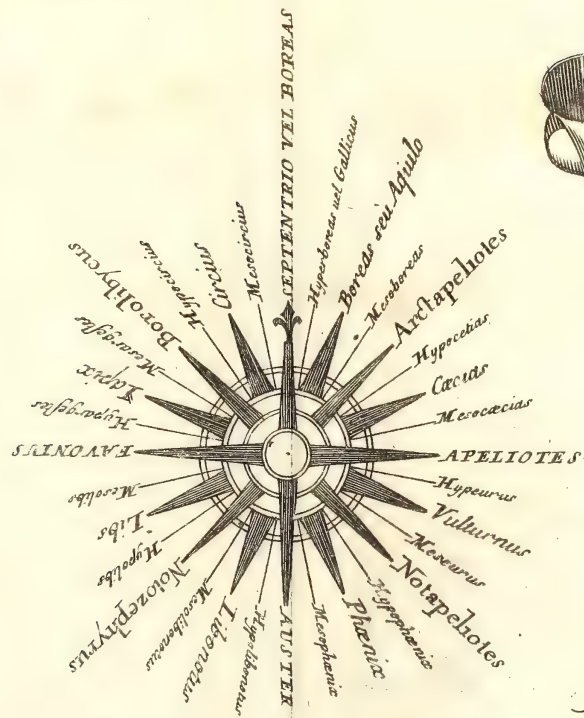 SEPTENTRIO VEL BOREAS
Hyperboreas uel Gallicus
Boreas seu Aquilo
Mesoboreas
Arctapeliotes
Hypocæcias.
Cæcias
Mesocæcias
APELIOTES
Hypeurus
Vulturnus
Meseurus
Notapeliotes
Hypophœnix
Phœnix
Mesophœnix
AUSTER
Hypolibonotus
Libonotus
Mesolibonotus
Notozephyrus
Hypolibs
Libs
Mesolibs
FAVONIUS
Hypargestes
Iapix
Mesargestes
Borolibycus
Hypocircius
Circius
Mesocircius